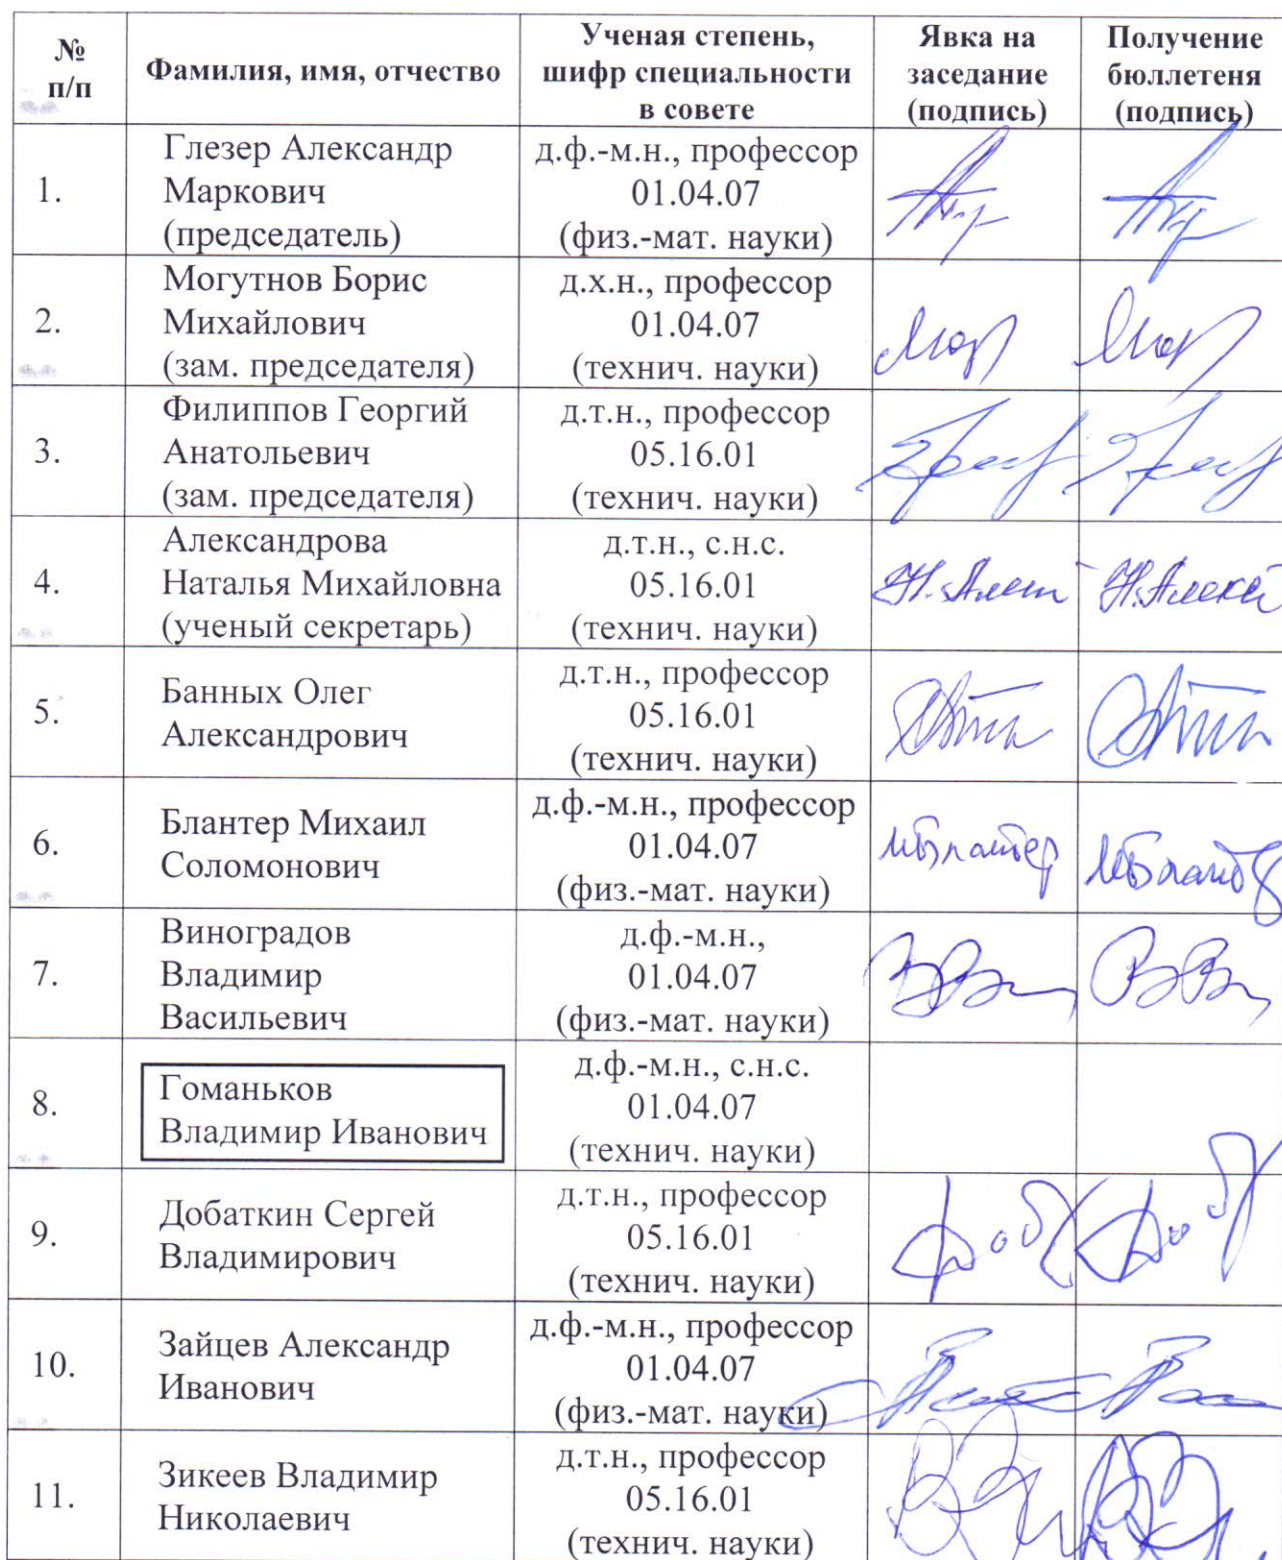 №
п/п
Фамилия, имя, отчество
Ученая степень,
шифр специальности
в совете
Явка на
заседание
(подпись)
Получение
бюллетеня
(подпись)
1.
Глезер Александр
Маркович
(председатель)
д.ф.-м.н., профессор
01.04.07
(физ.-мат. науки)
2.
Могутнов Борис
Михайлович
(зам. председателя)
д.х.н., профессор
01.04.07
(технич. науки)
3.
Филиппов Георгий
Анатольевич
(зам. председателя)
д.т.н., профессор
05.16.01
(технич. науки)
4.
Александрова
Наталья Михайловна
(ученый секретарь)
д.т.н., с.н.с.
05.16.01
(технич. науки)
5.
Банных Олег
Александрович
д.т.н., профессор
05.16.01
(технич. науки)
6.
Блантер Михаил
Соломонович
д.ф.-м.н., профессор
01.04.07
(физ.-мат. науки)
7.
Виноградов
Владимир
Васильевич
д.ф.-м.н.,
01.04.07
(физ.-мат. науки)
8.
Гоманьков
Владимир Иванович
д.ф.-м.н., с.н.с.
01.04.07
(технич. науки)
9.
Добаткин Сергей
Владимирович
д.т.н., профессор
05.16.01
(технич. науки)
10.
Зайцев Александр
Иванович
д.ф.-м.н., профессор
01.04.07
(физ.-мат. науки)
11.
Зикеев Владимир
Николаевич
д.т.н., профессор
05.16.01
(технич. науки)